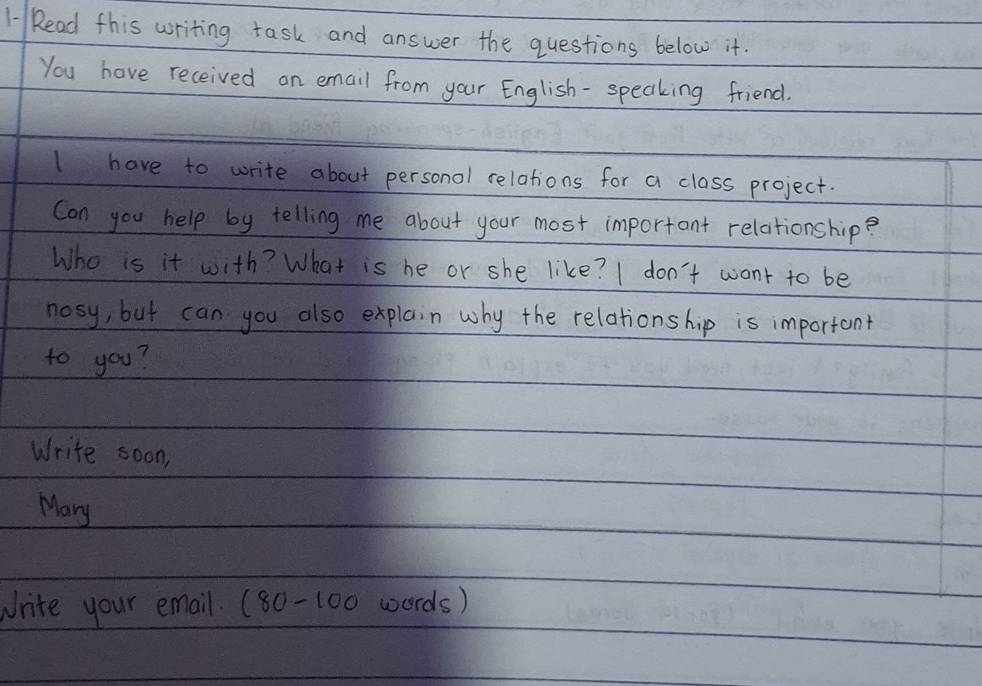 1- Read this writing task and answer the questions below it.
You have received an email from your English-speaking friend.
I have to write about personal relations for a class project.
Can you help by telling me about your most important relationship?
Who is it with? What is he or she like? I don't want to be
nosy, but can you also explain why the relationship is important
to you?
Write soon,
Mary
Write your email. (80-100 words)